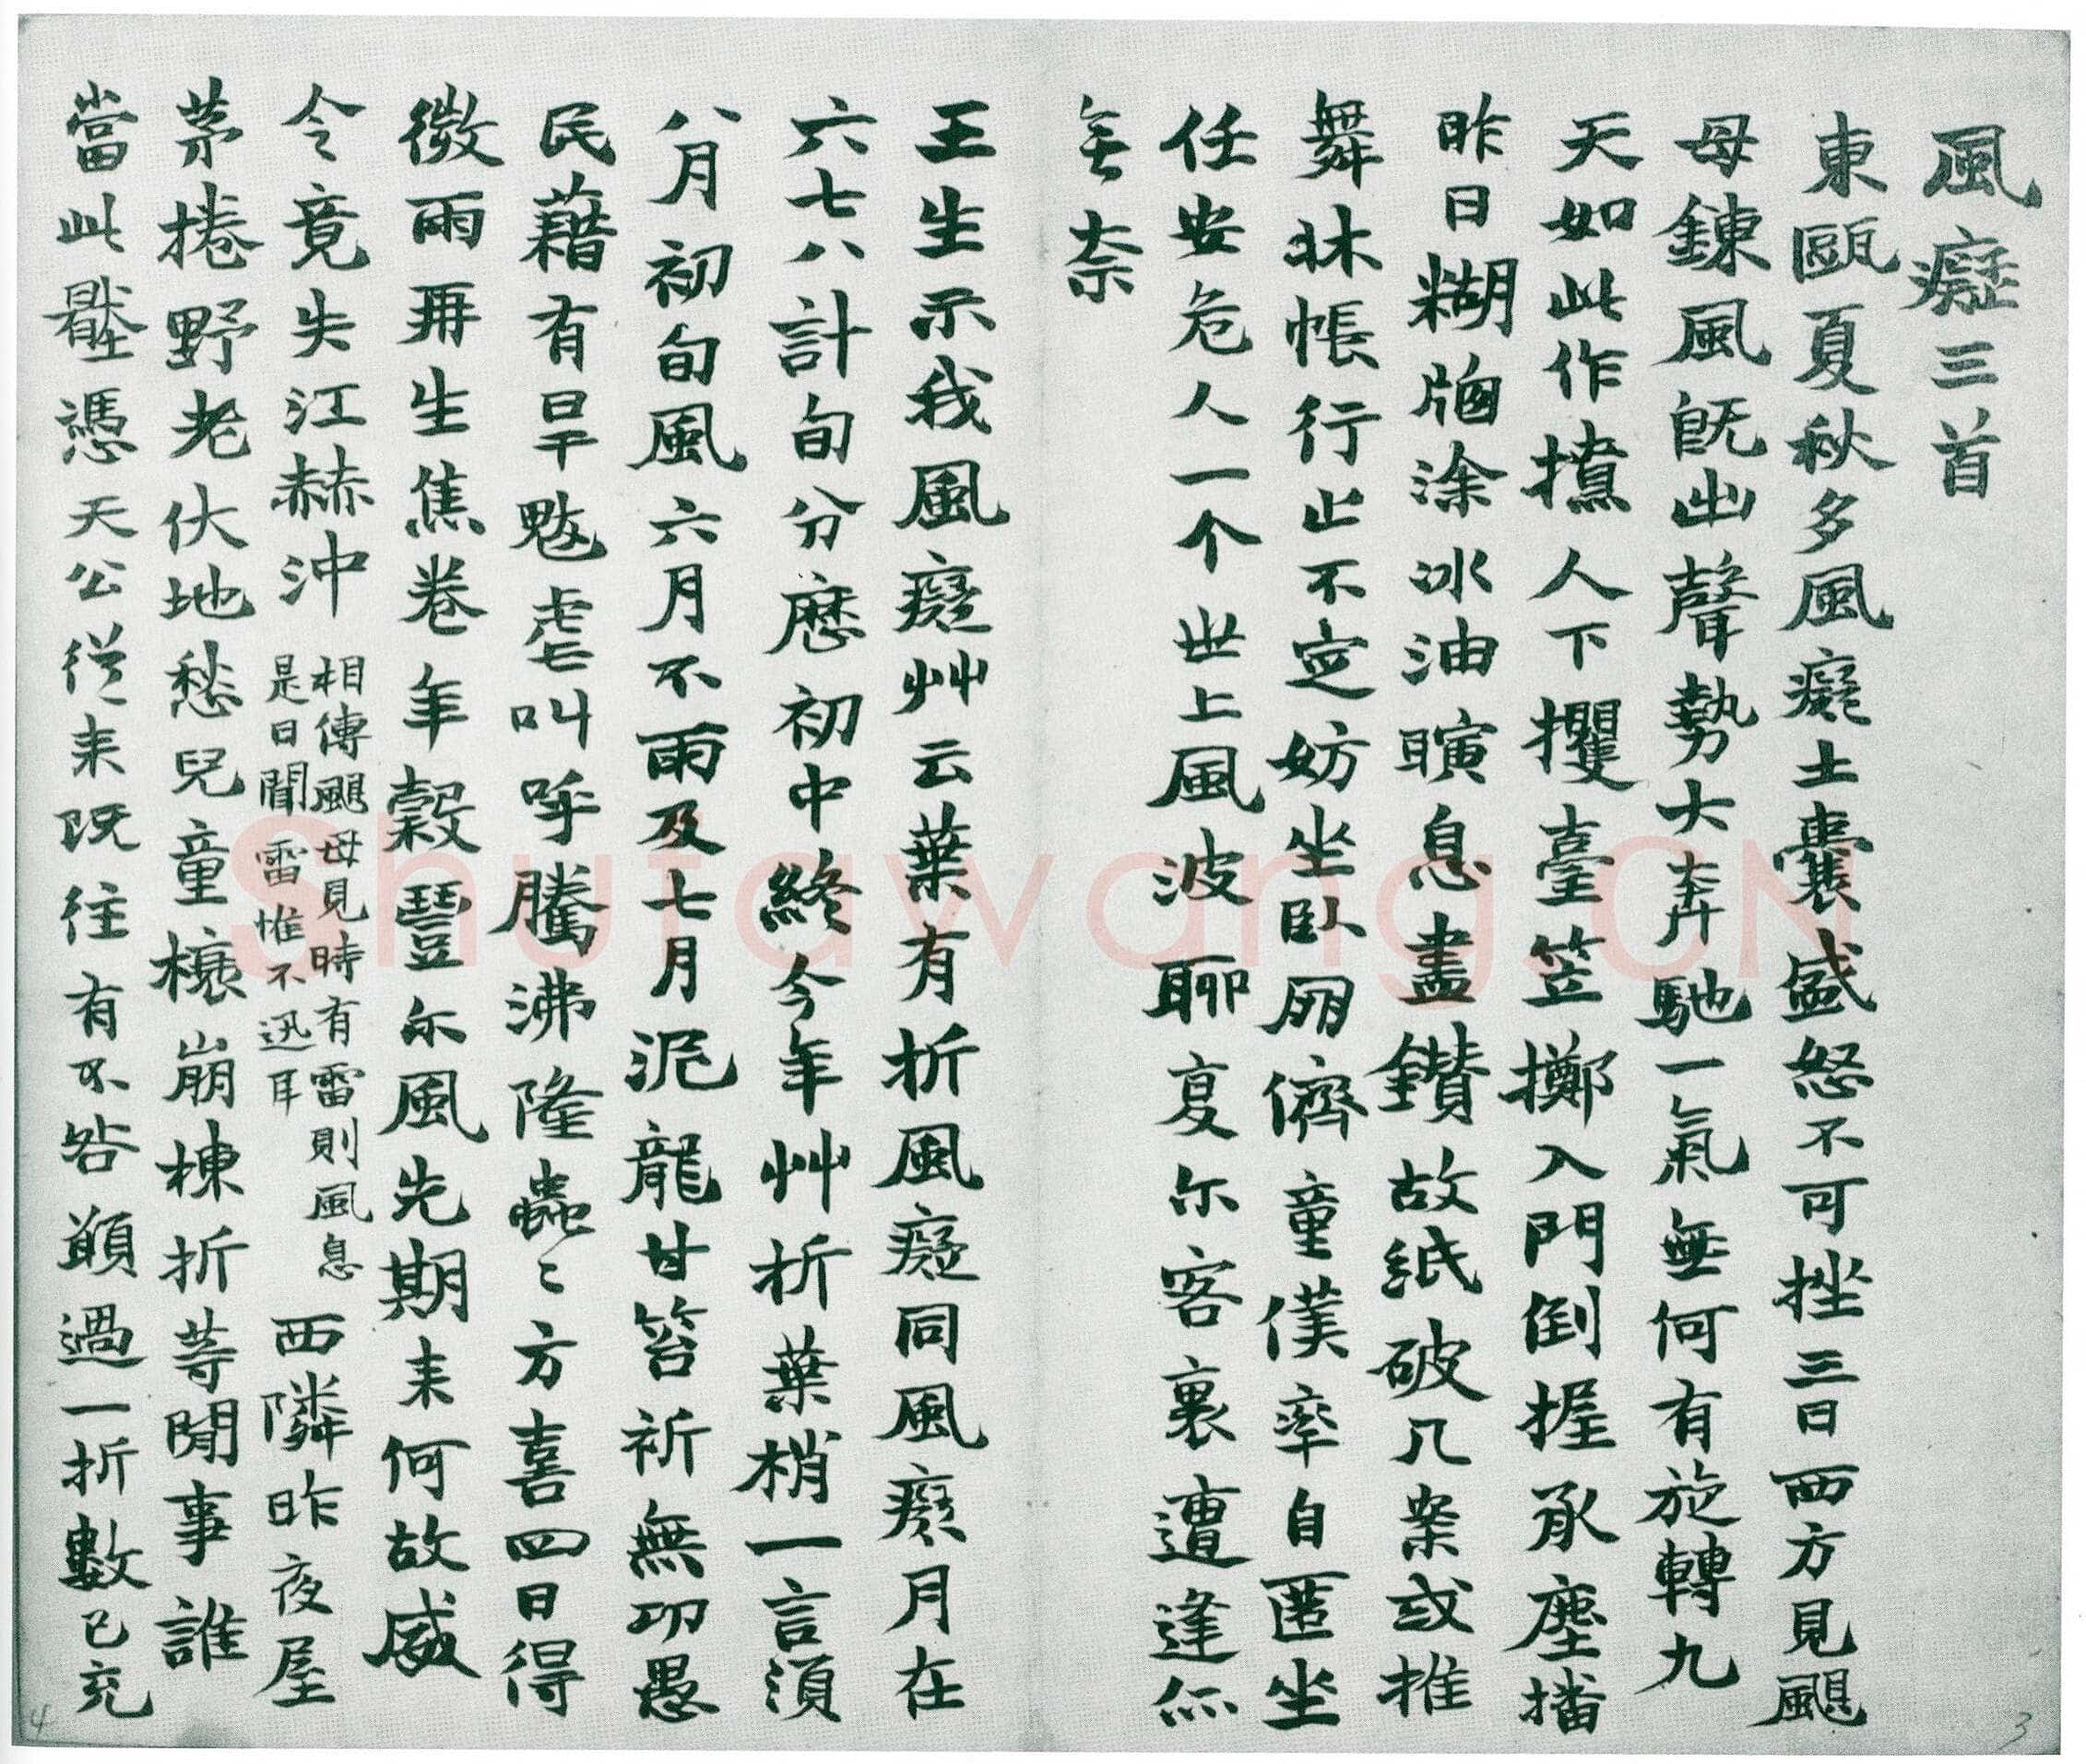 風癡三首
東甌夏秋多風癡土囊盛怒不可挫三日西方見颶
母鍊風旣出聲勢大奔馳一氣無何有旋轉九
天如此作攩人下攫臺笠擲入門倒握承塵播
昨日糊牕涂冰油瞚息盡鑽故紙破几案或推
舞牀帳行止不定妨坐臥朋儕童僕率自匿坐
任安危人一个世上風波聊复尓客裏遭逢
无奈
王生示我風癡艸云葉有折風癡同風癡月在
六七八計旬分厯初中終今年艸折葉梢一言須
八月初旬風六月不雨及七月泥龍甘笞祈無功愚
民藉有旱魃虐叫呼騰沸隆蟲〻方喜四日得
微雨再生焦卷年穀豐尓風先期来何故威
令竟失江赫沖
相傳颶母見時有雷則風息
是日聞雷惟不迅耳
西隣昨夜屋
茅捲野老伏地愁兒童榱崩棟折等閒事誰
當此釁憑天公從来既往有不咎顓過一折數已充
Shufawang.CN
3
4